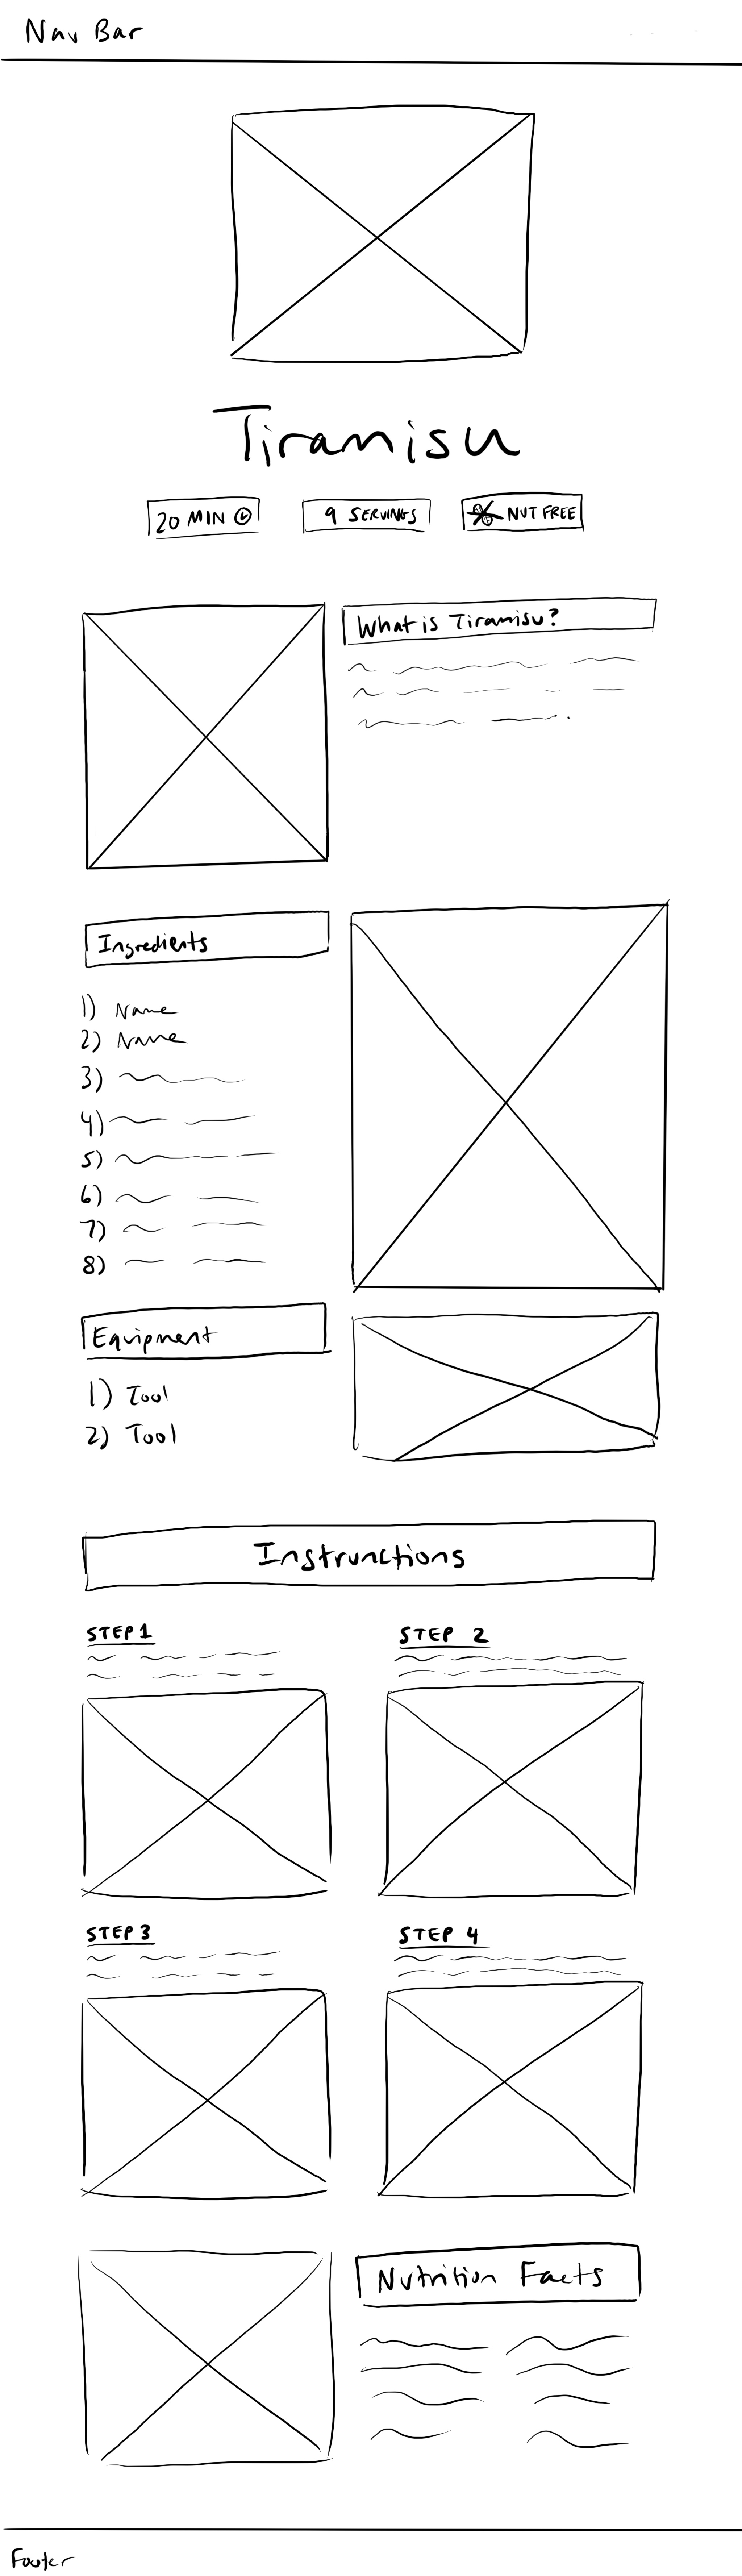 Nav Bar
Tiramisu
20 MIN
9 SERVINGS
NUT FREE
What is Tiramisu?
Ingredients
1) Name
2) Name
3)
4)
5)
6)
7)
8)
Equipment
1) Tool
2) Tool
Instrunctions
STEP 1
STEP 2
STEP 3
STEP 4
Nutrition Facts
Footer